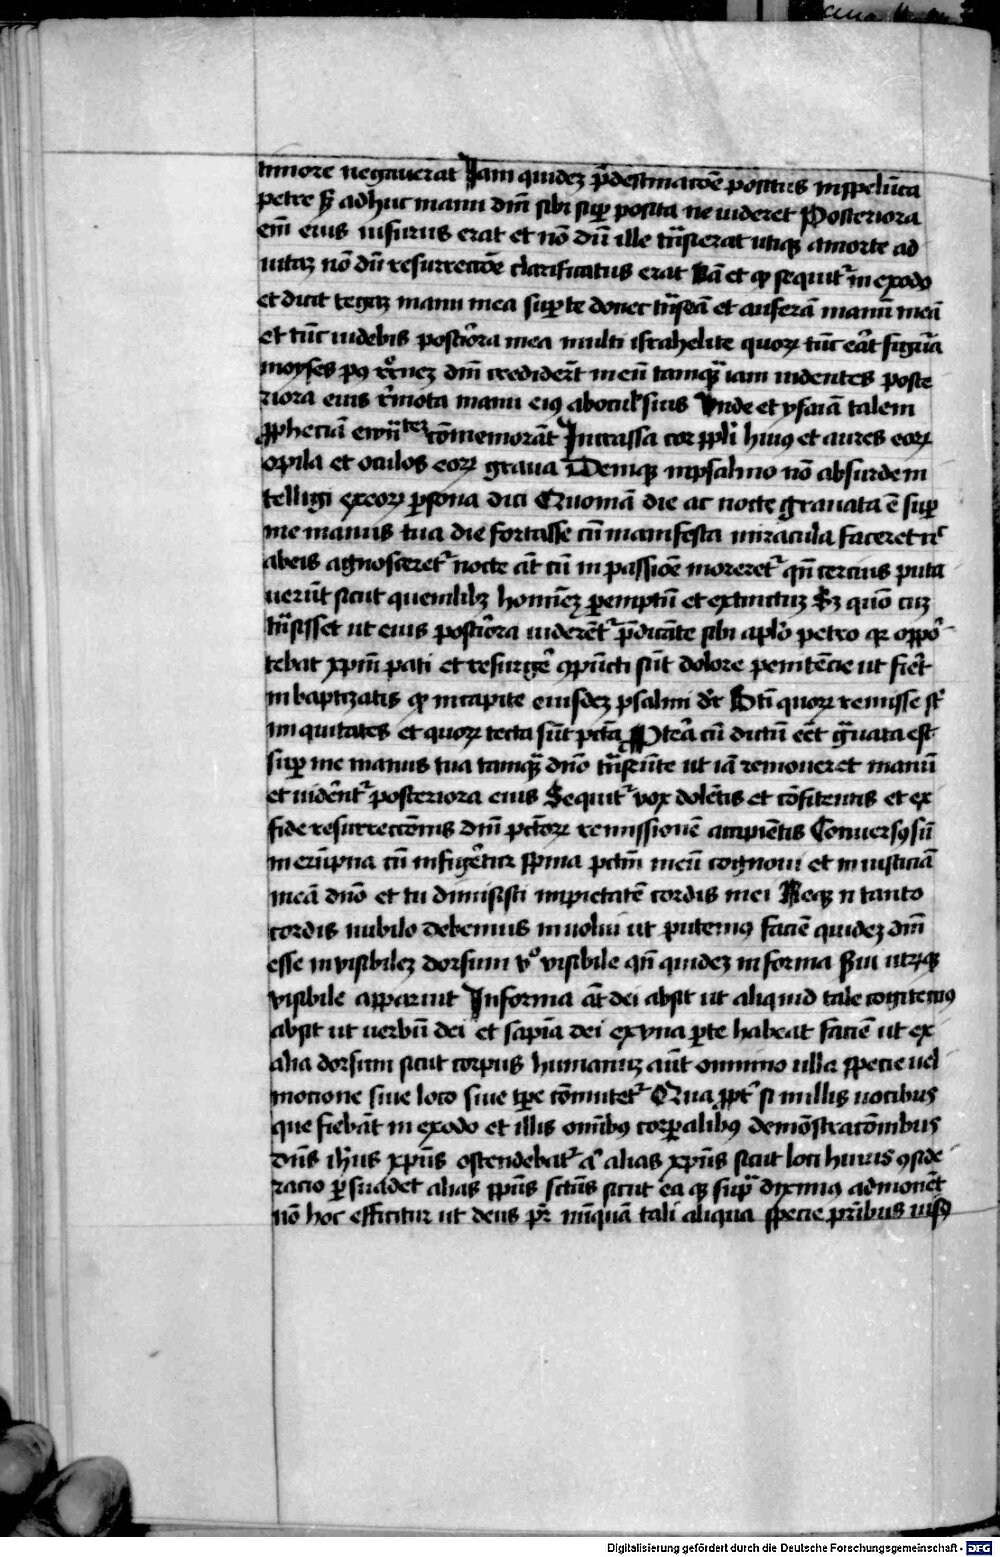 timore negauerat Iam quideʒ p̄destinacōe positus in speluca
petre sꝫ adhuc manu dn̄i sibi suꝑ posita ne uideret Posteriora
em̄ eius uisurus erat et nō dū ille tn̄sierat utiqꝫ a morte ad
uitaʒ nō dū resurreccōe clarificatus erat Nā et qꝫ sequit᷑ in exodo
et dicit tegaʒ manu mea suꝑ te donec tn̄seā et auferā manū meā
et tūc uidebis posteriora mea multi israhelite quoꝝ tūc erāt figura
moyses pꝰ r̄r̄nez dn̄i credider̄t in eū tamqꝫ iam uidentes poste
riora eius r̄mota manu eiꝰ ab ocul̓ suis Vnde et ysaiā talem
ꝓphetiā ewn̄teʒ cōmemorāt Incrassa cor ppl̓i huiꝰ et aures eoꝝ
oppila et oculos eoꝝ graua Deniqꝫ in psalmo nō absurde in
telligi ex eoꝝ ꝑsona dici Quoniā die ac nocte grauata ē suꝑ
me manus tua die fortasse cū manifesta miracula faceret n̄
ab eis agnosceret᷑ nocte āt cū in passiōe moreret᷑ qn̄ certius puta
uerūt sicut quemlibʒ hominēʒ ꝑemptū et extinctuʒ Sꝫ quō cuʒ
tn̄sisset ut eius posteriora uiderēt᷑ p̄dicāte sibi apl̓o petro qꝛ oppor
tebat xp̄m pati et resurger̄ ꝯpūcti sūt dolore penitēcie ut fier̄t
in baptizatis qꝫ in capite eiusdeʒ psalmi dr̄ Bt̄i quoꝝ remisse st̄
iniquitates et quoꝝ tecta sūt pctā Ptēa cū dictū eēt gͣuata est
suꝑ me manus tua tamqꝫ dn̄o tͣnseūte ut iā remoueret manū
et uiderēt᷑ posteriora eius Sequit᷑ vox dolētis et cōfitentis et ex
fide resurreccōnis dn̄i pctōꝝ remissionē accipiētis Conuersꝰ sū
in erūpna cū infiget᷑ur spina pctm̄ meū cognoui et in iusticiā
meā dn̄o et tu dimisisti impietatē cordis mei Neqꝫ n̄ tanto
cordis nubilo debemus inuolui ut putemꝰ faciē quideʒ dn̄i
esse invisibileʒ dorsum v̊ visibile qn̄ quideʒ in forma sui utꝛqꝫ
visibile apparuit In forma āt dei absit ut aliquid tale cogitemꝰ
absit ut uerbū dei et sapīa dei ex vna ꝑte habeat faciē ut ex
alia dorsum sicut corpus humanuʒ aūt omnino ulla specie uel
mocione siue loco siue tꝑe cōmutet᷑ Qua ꝓpt̄ si in illis uocibus
que fiebāt in exodo et illis omībꝰ corꝑalibꝰ demōstracōnibus
dn̄s ih̄us xp̄us ostendebat᷑ a᷑ alias xp̄us sicut loci huius ꝯside
racio ꝑsuadet alias sp̄us sctūs sicut ea qꝫ supͣ diximꝰ admonēt
nō hoc efficitur ut deus pr̄ nūquā tali aliqua specie pr̄ibus uisꝰ